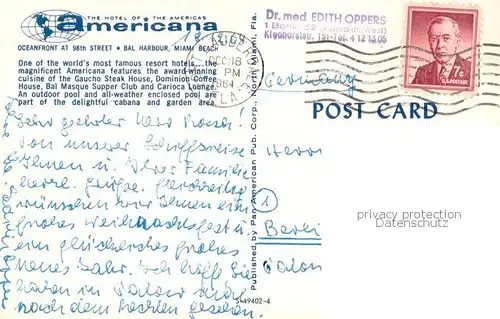 THE HOTEL OF THE AMERICAS
americana
OCEANFRONT AT 98th STREET • BAL HARBOUR, MIAMI BEACH
One of the world's most famous resort hotels... the
magnificent Americana features the award-winning
cuisine of the Gaucho Steak House, Dominion Coffee
House, Bal Masque Supper Club and Carioca Lounge.
An outdoor pool and all-weather enclosed pool are
part of the delightful cabana and garden area.
Sehr geehrter Herr
von unserer Schiffsreise
Ihnen u. Ihrer Familie
herzl. Grüße. Gleichzeitig
wünschen wir Ihnen ein
frohes Weihnachtsfest u.
ein glückliches frohes
neues Jahr. Ich hoffe Sie
haben im Salon
nach dem Rechten gesehen.
Published by Pan American Pub. Corp., North Miami, Fla.
S-49402-4
DEC 18
PM
1964
FLA.
Dr. med EDITH OPPERS
1 Berlin
151 - Tel. 4 12 13 05
7¢
U.S. POSTAGE
Germany
POST CARD
Herrn
Berlin
Salon
privacy protection
Datenschutz